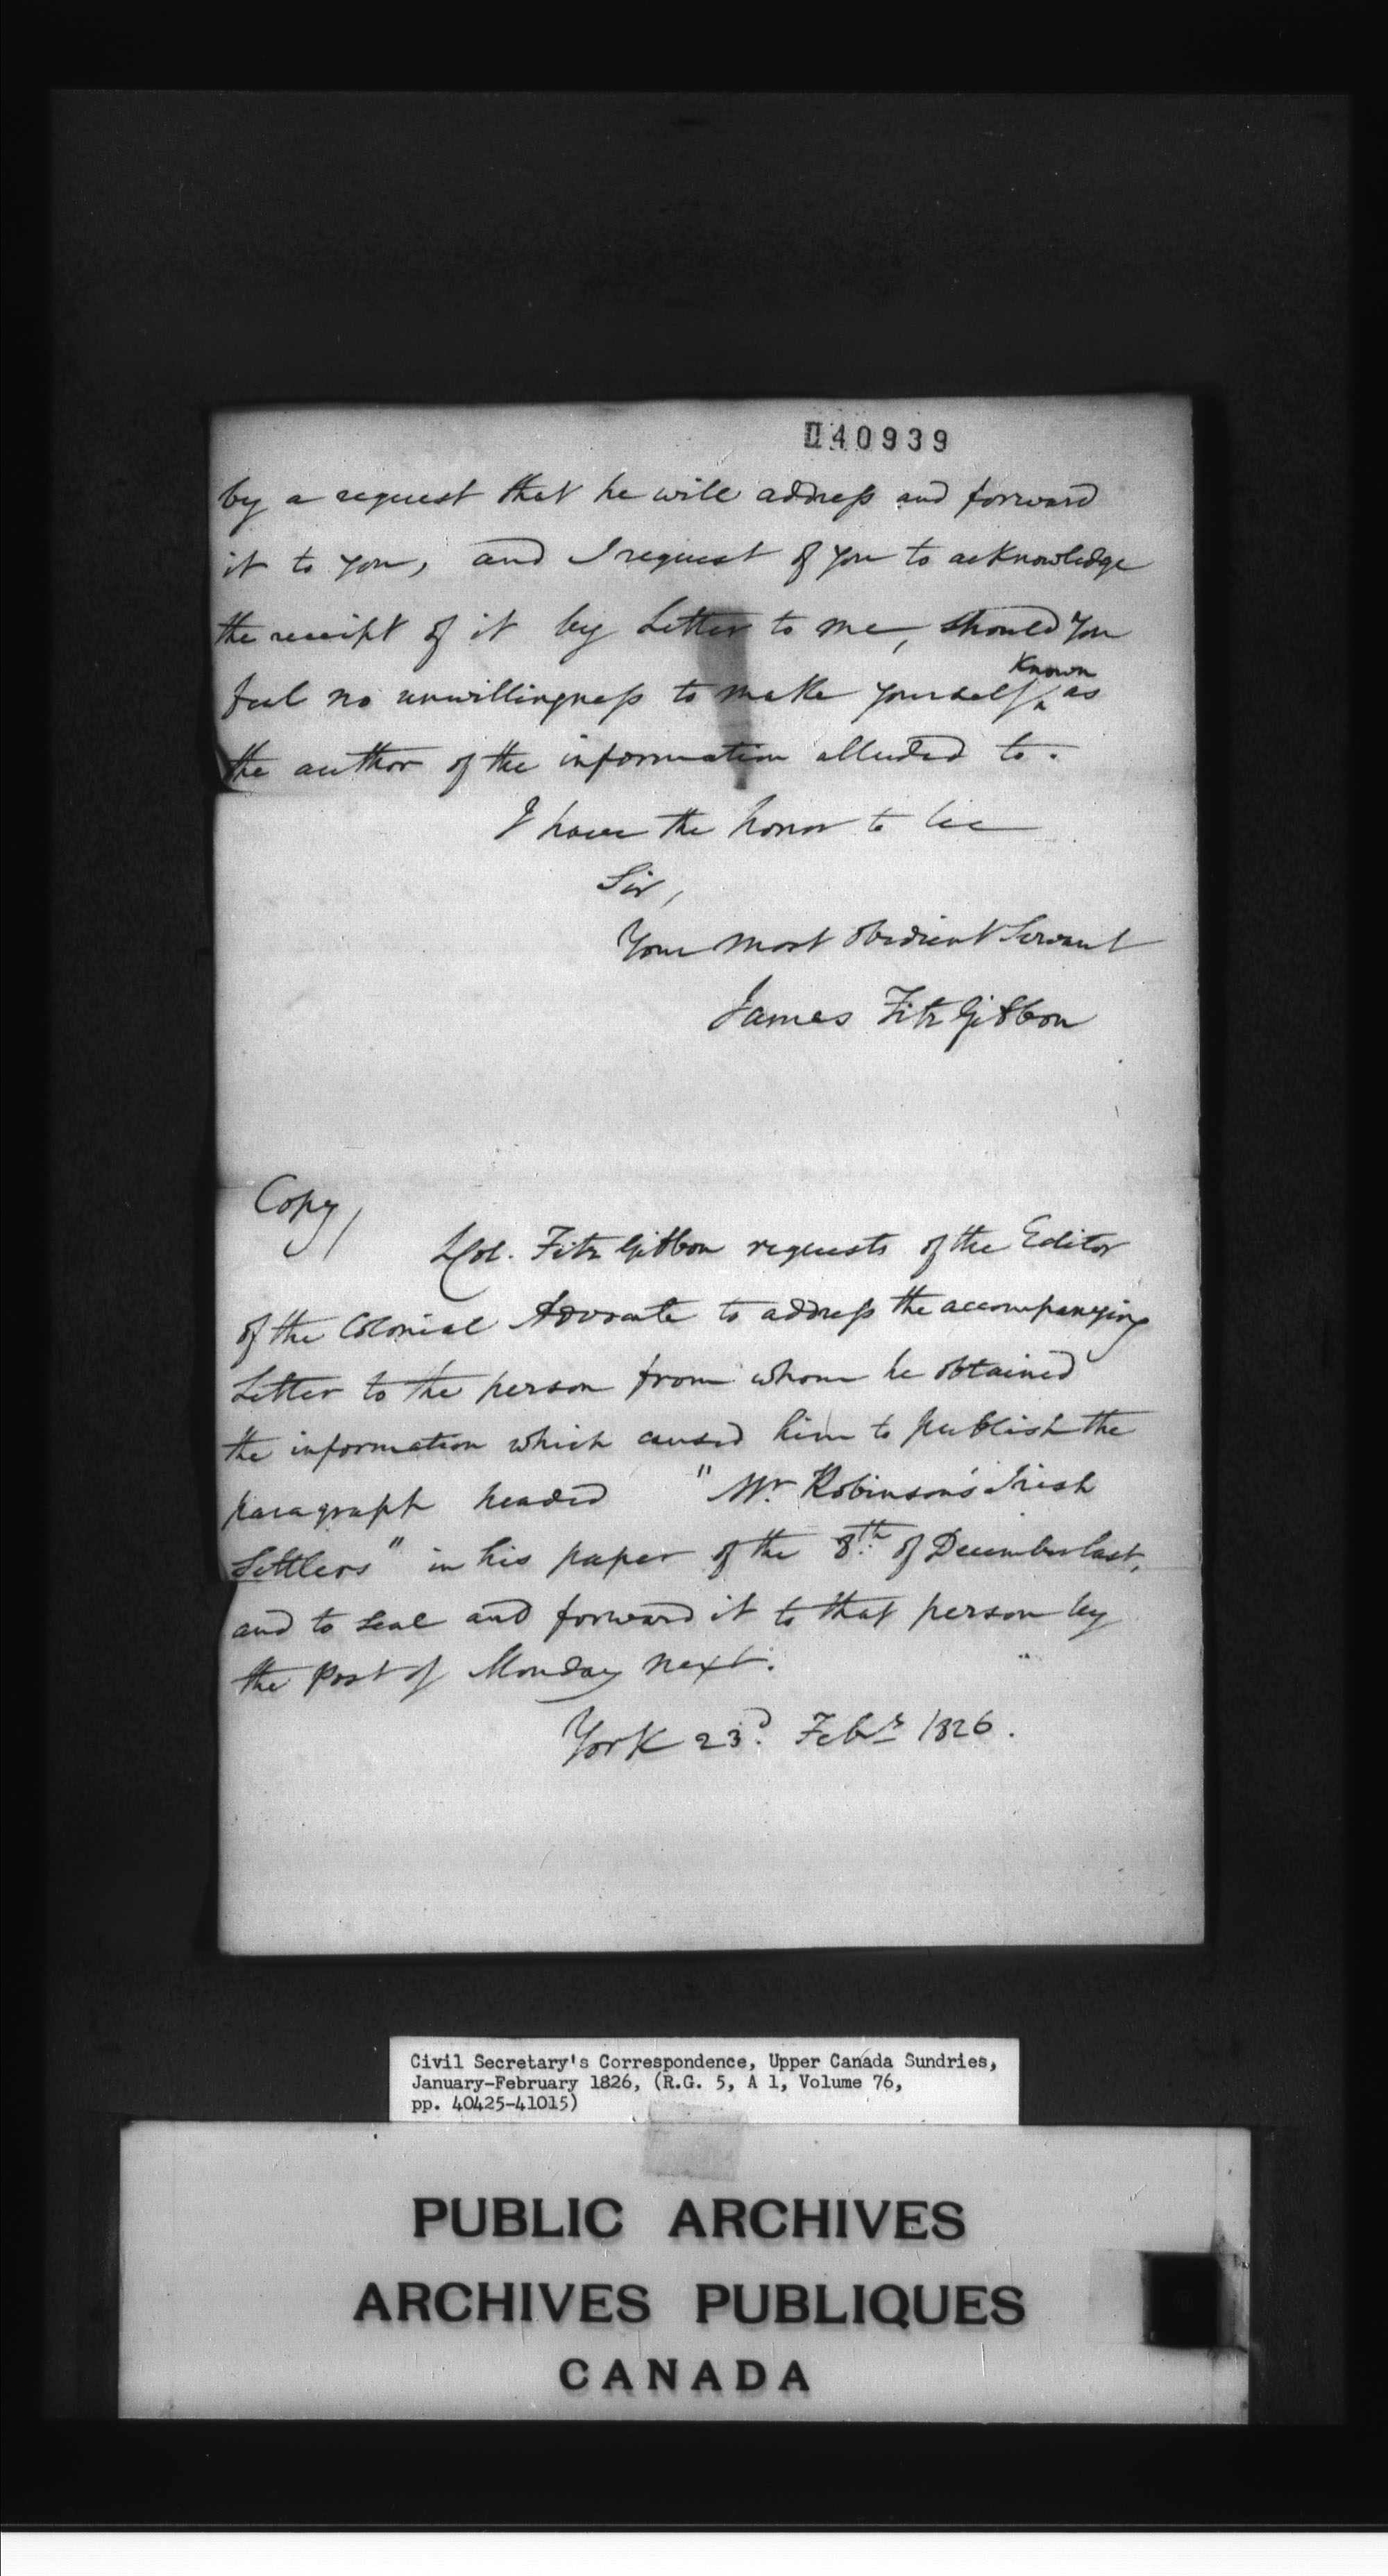 40939
by a request that he will address and forward
it to you, and I request of you to acknowledge
the receipt of it by Letter to me, should you
feel no unwillingness to make yourself known as
the author of the information alluded to.
I have the honor to be
Sir,
Your most obedient Servant
James FitzGibbon
Copy/
LCol. FitzGibbon requests of the Editor
of the Colonial Advocate to address the accompanying
Letter to the person from whom he obtained
the information which caused him to publish the
paragraph headed "Mr. Robinson's Irish
Settlers" in his paper of the 8th. of December last,
and to seal and forward it to that person by
the Post of Monday next.
York 23d. Feby 1826.
Civil Secretary's Correspondence, Upper Canada Sundries,
January-February 1826, (R.G. 5, A 1, Volume 76,
pp. 40425-41015)
PUBLIC ARCHIVES
ARCHIVES PUBLIQUES
CANADA